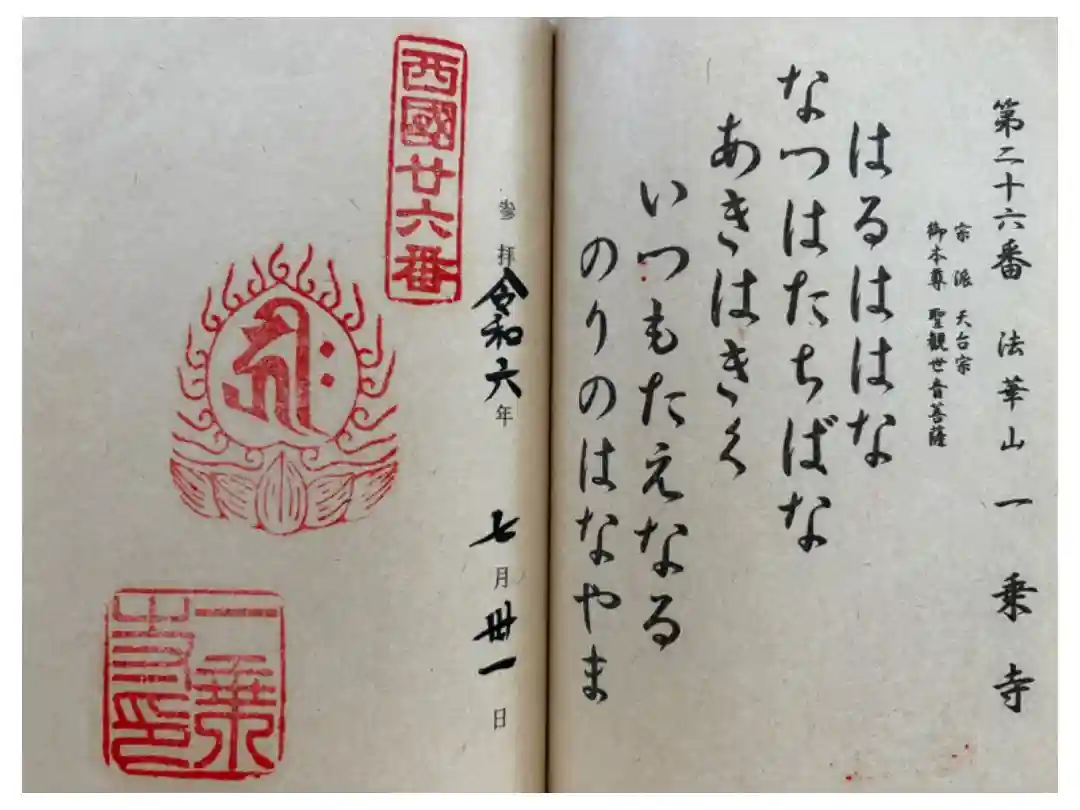 第二十六番 法華山 一乗寺
宗派 天台宗
御本尊 聖観世音菩薩
はるははな
なつはたちばな
あきはきく
いつもたえなる
のりのはなやま
参拝 令和六年 七月 卅一日
西國廿六番
一乗
寺印